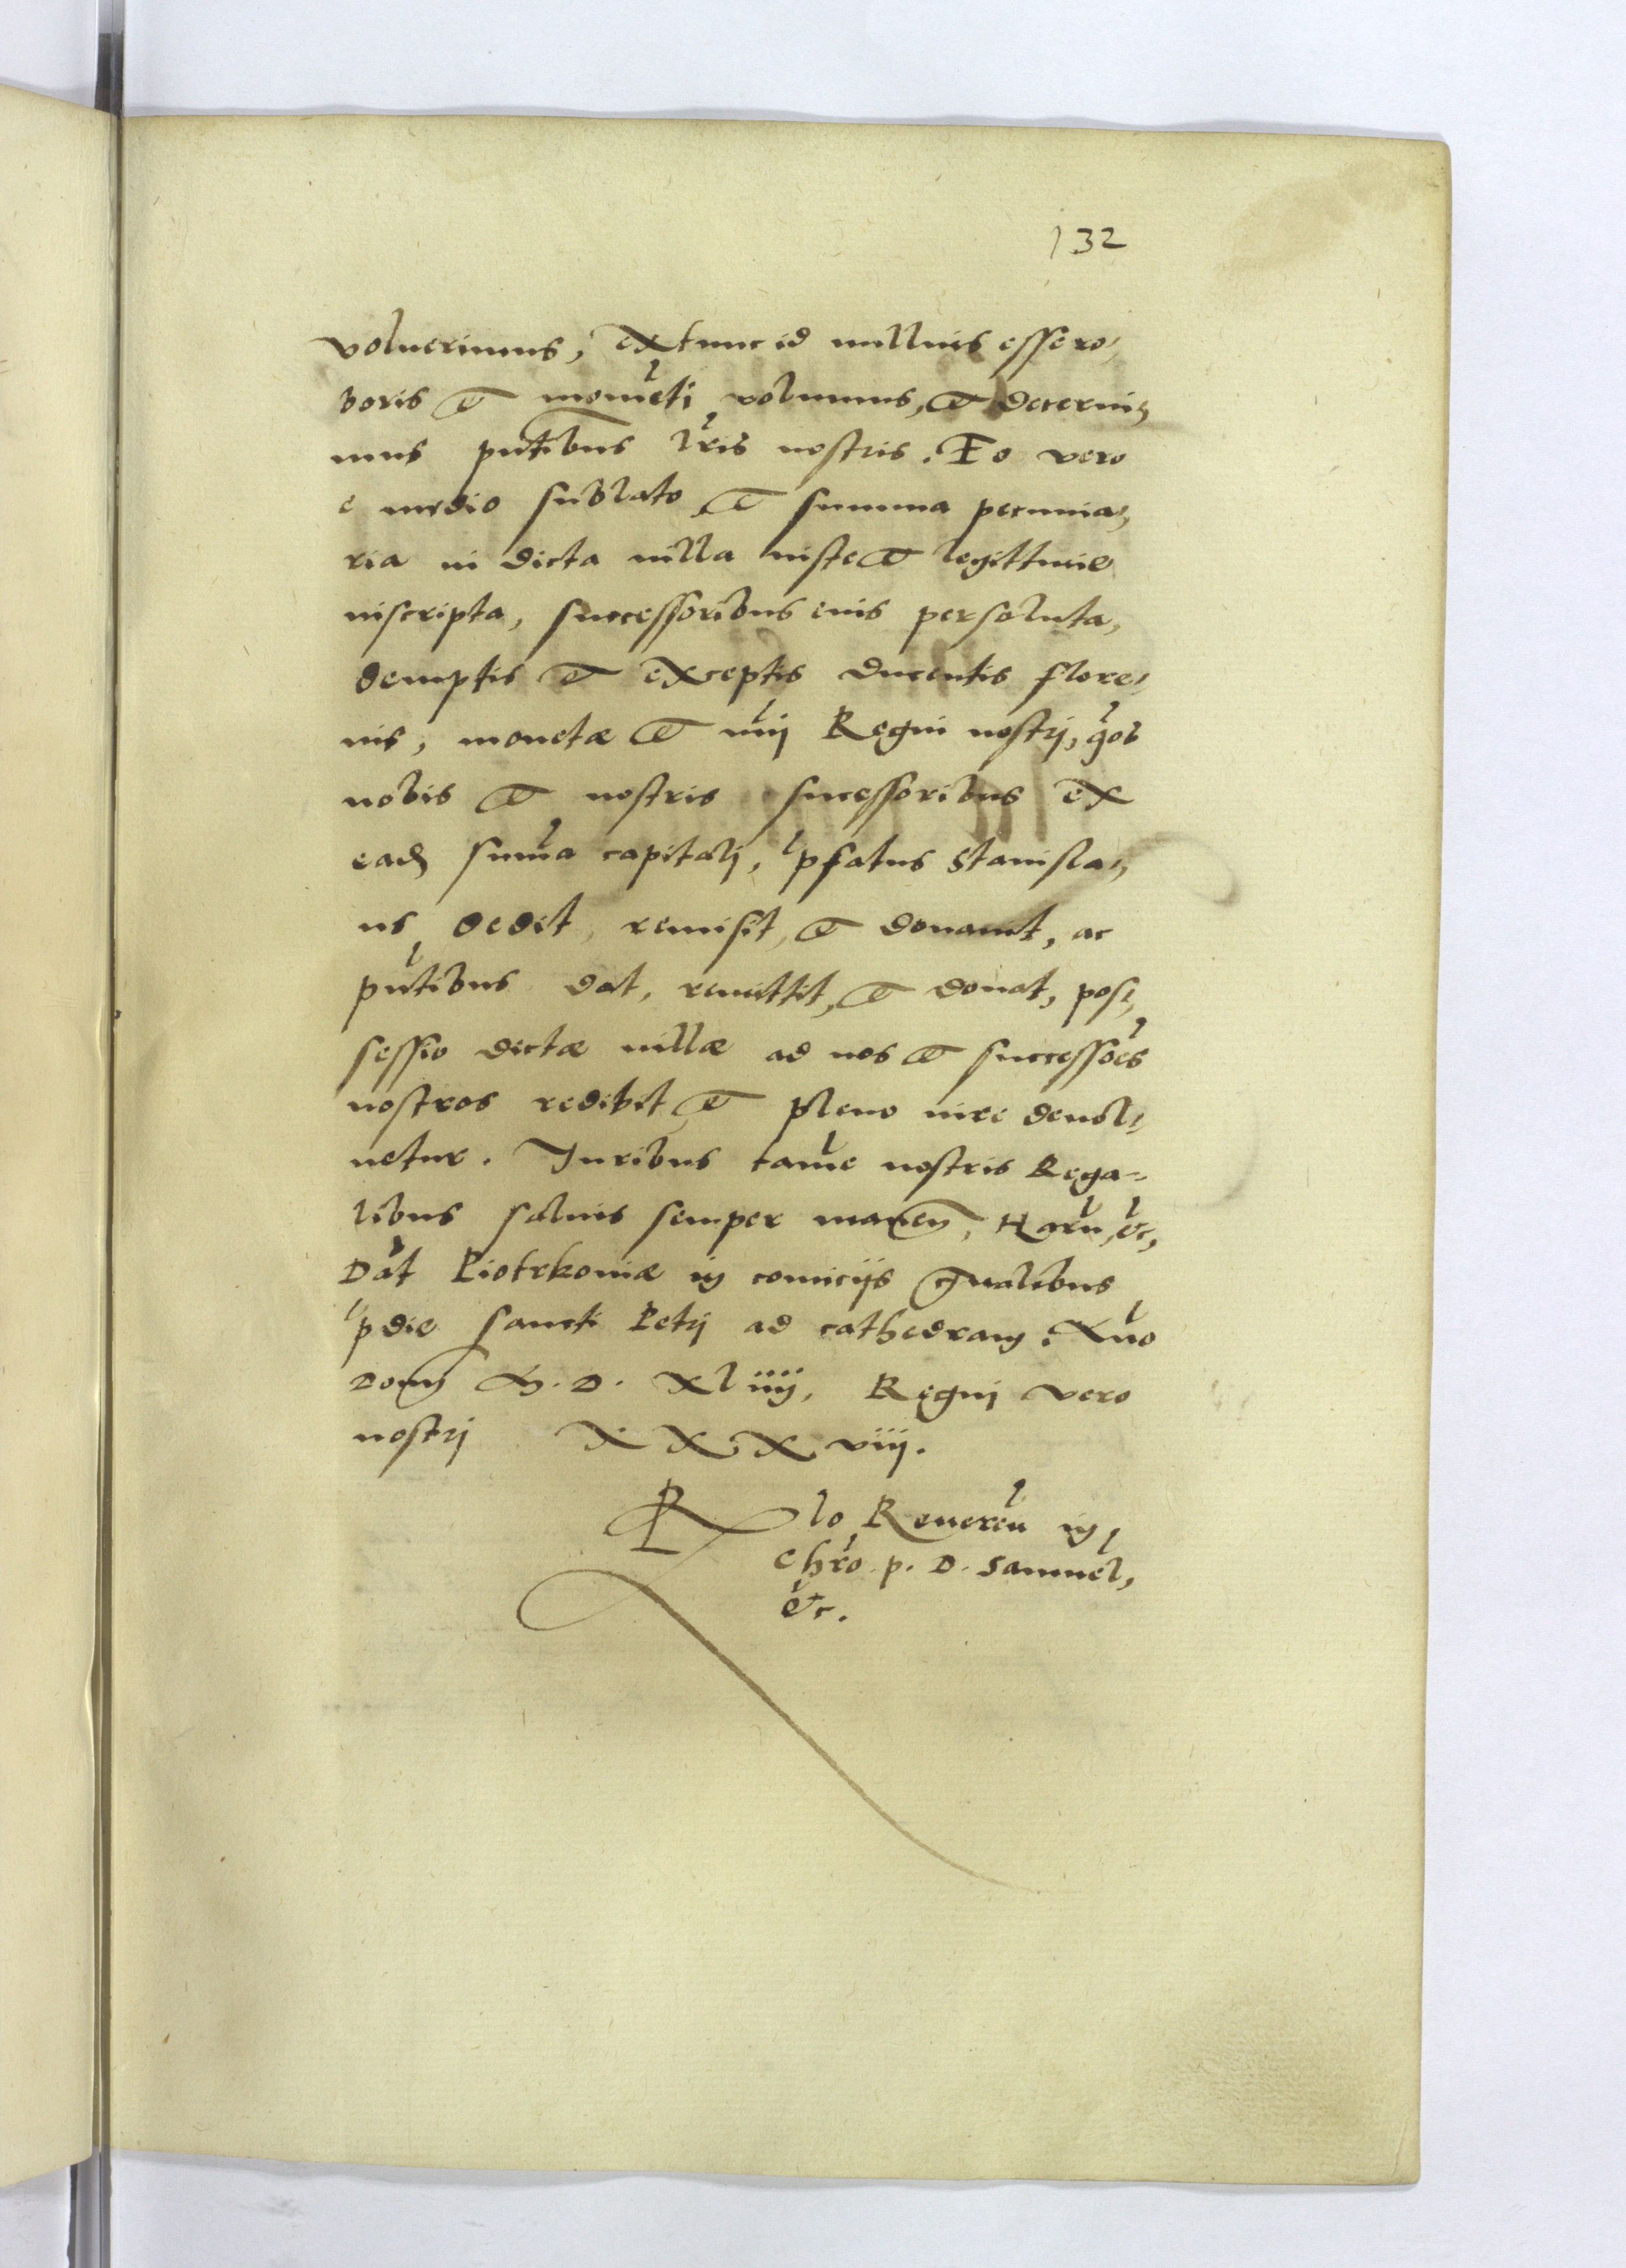 132
voluerimus, extunc id nullius esse ro,
boris et momẽti volumus, et decerni,
mus pñtibus lr̃is nostris. Eo vero
e medio sublato et summa pecunia,
ria in dicta uilla iuste et legittime
inscripta, successoribus eius persoluta,
demptis et exceptis ducentis flore,
nis, monetæ et nũi Regni nostrj, q̃os
nobis et nostris sucessoribus ex
eadẽ sum̃a capitalj, p̃fatus Stanisla,
us dedit, remisit, et donauit, ac
pñtibus dat, remittit, et donat, pos,
sessio dictæ uillæ ad nos et successoẽs
nostros redibit et pleno iure deuol,
uetur. Juribus tamẽ nostris Rega-
libus saluis semper maneñ, Harũ, &c,
Dat̃ Piotrkoviæ in comicijs gñalibus
p̃die sancti Petrj ad cathedram. Añno
Domĩ M. D. XLiiij, Regnj vero
nostrj XXXviij.
Rl̃o Reuereñ in
Chr̃o p. D. Samuel,
&c.